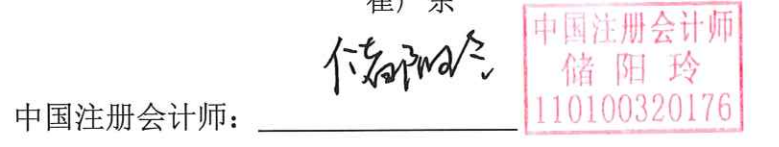 中国注册会计师
储阳玲
110100320176
储阳玲
中国注册会计师：